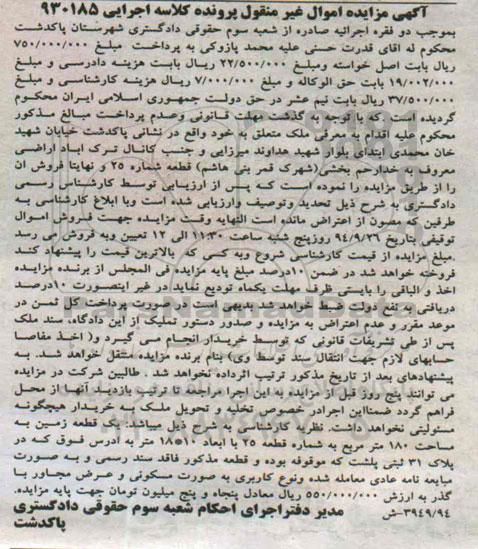 آگهی مزایده اموال غیر منقول پرونده کلاسه اجرایی ۹۳۰۱۸۵
بموجب دو فقره اجرائیه صادره از شعبه سوم حقوقی دادگستری شهرستان پاکدشت
محکوم له اقای قدرت حسنی علیه محمد پازوکی به پرداخت مبلغ ۷۵۰/۰۰۰/۰۰۰
ریال بابت اصل خواسته ومبلغ ۲۲/۵۰۰/۰۰۰ ریال بابت هزینه دادرسی و مبلغ
۱۹/۰۰۲/۰۰۰ بابت حق الوکاله و مبلغ ۷/۰۰۰/۰۰۰ ریال هزینه کارشناسی و مبلغ
۳۷/۵۰۰/۰۰۰ ریال بابت نیم عشر در حق دولت جمهوری اسلامی ایران محکوم
گردیده است که با توجه به گذشت مهلت قانونی وعدم پرداخت مبالغ مذکور
محکوم علیه اقدام به معرفی ملک متعلق به خود واقع در نشانی پاکدشت خیابان شهید
خان محمدی ابتدای بلوار شهید هداوند میرزایی و جنب کانال ترک اباد اراضی
معروف به خدارحم بخشی(شهرک قمر بنی هاشم) قطعه شماره ۲۵ و نهایتا فروش ان
را از طریق مزایده را نموده است که پس از ارزیابی توسط کارشناس رسمی
دادگستری به شرح ذیل تحدید وتوصیف وارزیابی شده است وبا ابلاغ کارشناسی به
طرفین که مصون از اعتراض مانده است النهایه وقت مزایده جهت فروش اموال
توقیفی بتاریخ ۹۴/۹/۲۶ روزپنج شنبه ساعت ۱۱:۳۰ الی ۱۲ تعیین وبه فروش می رسد
.مبلغ مزایده از قیمت کارشناسی شروع وبه کسی که بالاترین قیمت را پیشنهاد کند
فروخته خواهد شد در ضمن ۱۰درصد مبلغ پایه مزایده فی المجلس از برنده مزایده
اخذ و الباقی را بایستی ظرف مهلت یکماه تودیع نماید در غیر اینصورت ۱۰درصد
دریافتی به نفع دولت ضبط خواهد شد بدیهی است در صورت پرداخت کل ثمن در
موعد مقرر و عدم اعتراض به مزایده و صدور دستور تملیک از این دادگاه، سند ملک
پس از طی تشریفات قانونی که توسط خریدار انجام می گیرد و( اخذ مفاصا
حسابهای لازم جهت انتقال سند توسط وی) بنام برنده مزایده منتقل خواهد شد. به
پیشنهادهای بعد از تاریخ مذکور ترتیب اثرداده نخواهد شد . طالبین شرکت در مزایده
می توانند پنج روز قبل از مزایده به این اجرا مراجعه تا ترتیب بازدید آنها از محل
فراهم گردد ضمنااین اجرادر خصوص تخلیه و تحویل ملک به خریدار هیچگونه
مسئولیتی نخواهد داشت. نظریه کارشناسی به شرح ذیل میباشد: یک قطعه زمین به
مساحت ۱۸۰ متر مربع به شماره قطعه ۲۵ با ابعاد ۱۰*۱۸ متر به آدرس فوق که در
پلاک ۳۱ ثبتی پلشت که موقوفه بوده و قطعه مذکور فاقد سند رسمی و به صورت
مبایعه نامه عادی معامله شده ونوع کاربری به صورت مسکونی و عرض مجاور با
گذر به ارزش ۵۵۰/۰۰۰/۰۰۰ ریال معادل پنجاه و پنج میلیون تومان جهت پایه مزایده.
۳۹۴۹/۹۴-ش مدیر دفتراجرای احکام شعبه سوم حقوقی دادگستری
پاکدشت